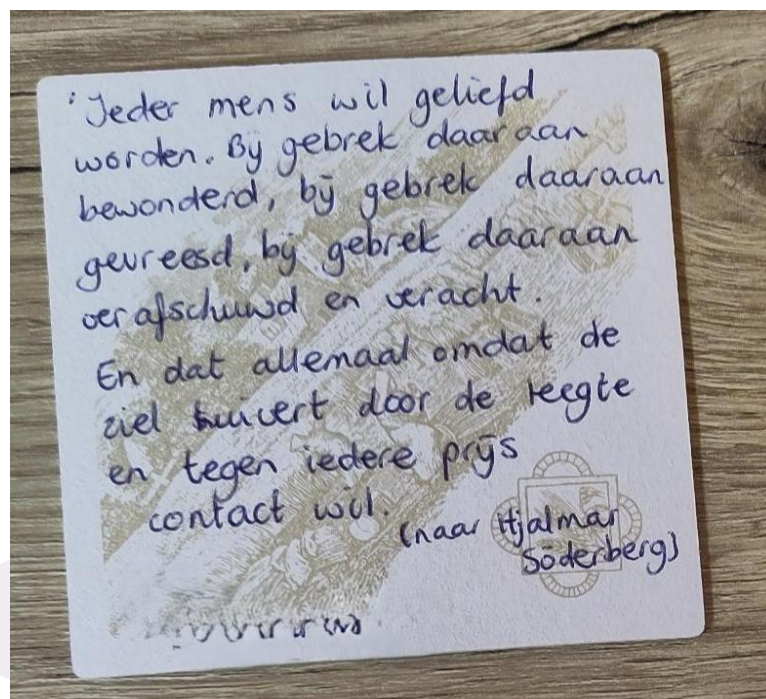 'Ieder mens wil geliefd
worden. Bij gebrek daaraan
bewonderd, bij gebrek daaraan
gevreesd, bij gebrek daaraan
verafschuwd en veracht.
En dat allemaal omdat de
ziel huivert door de leegte
en tegen iedere prijs
contact wil.
(naar Hjalmar
Söderberg)